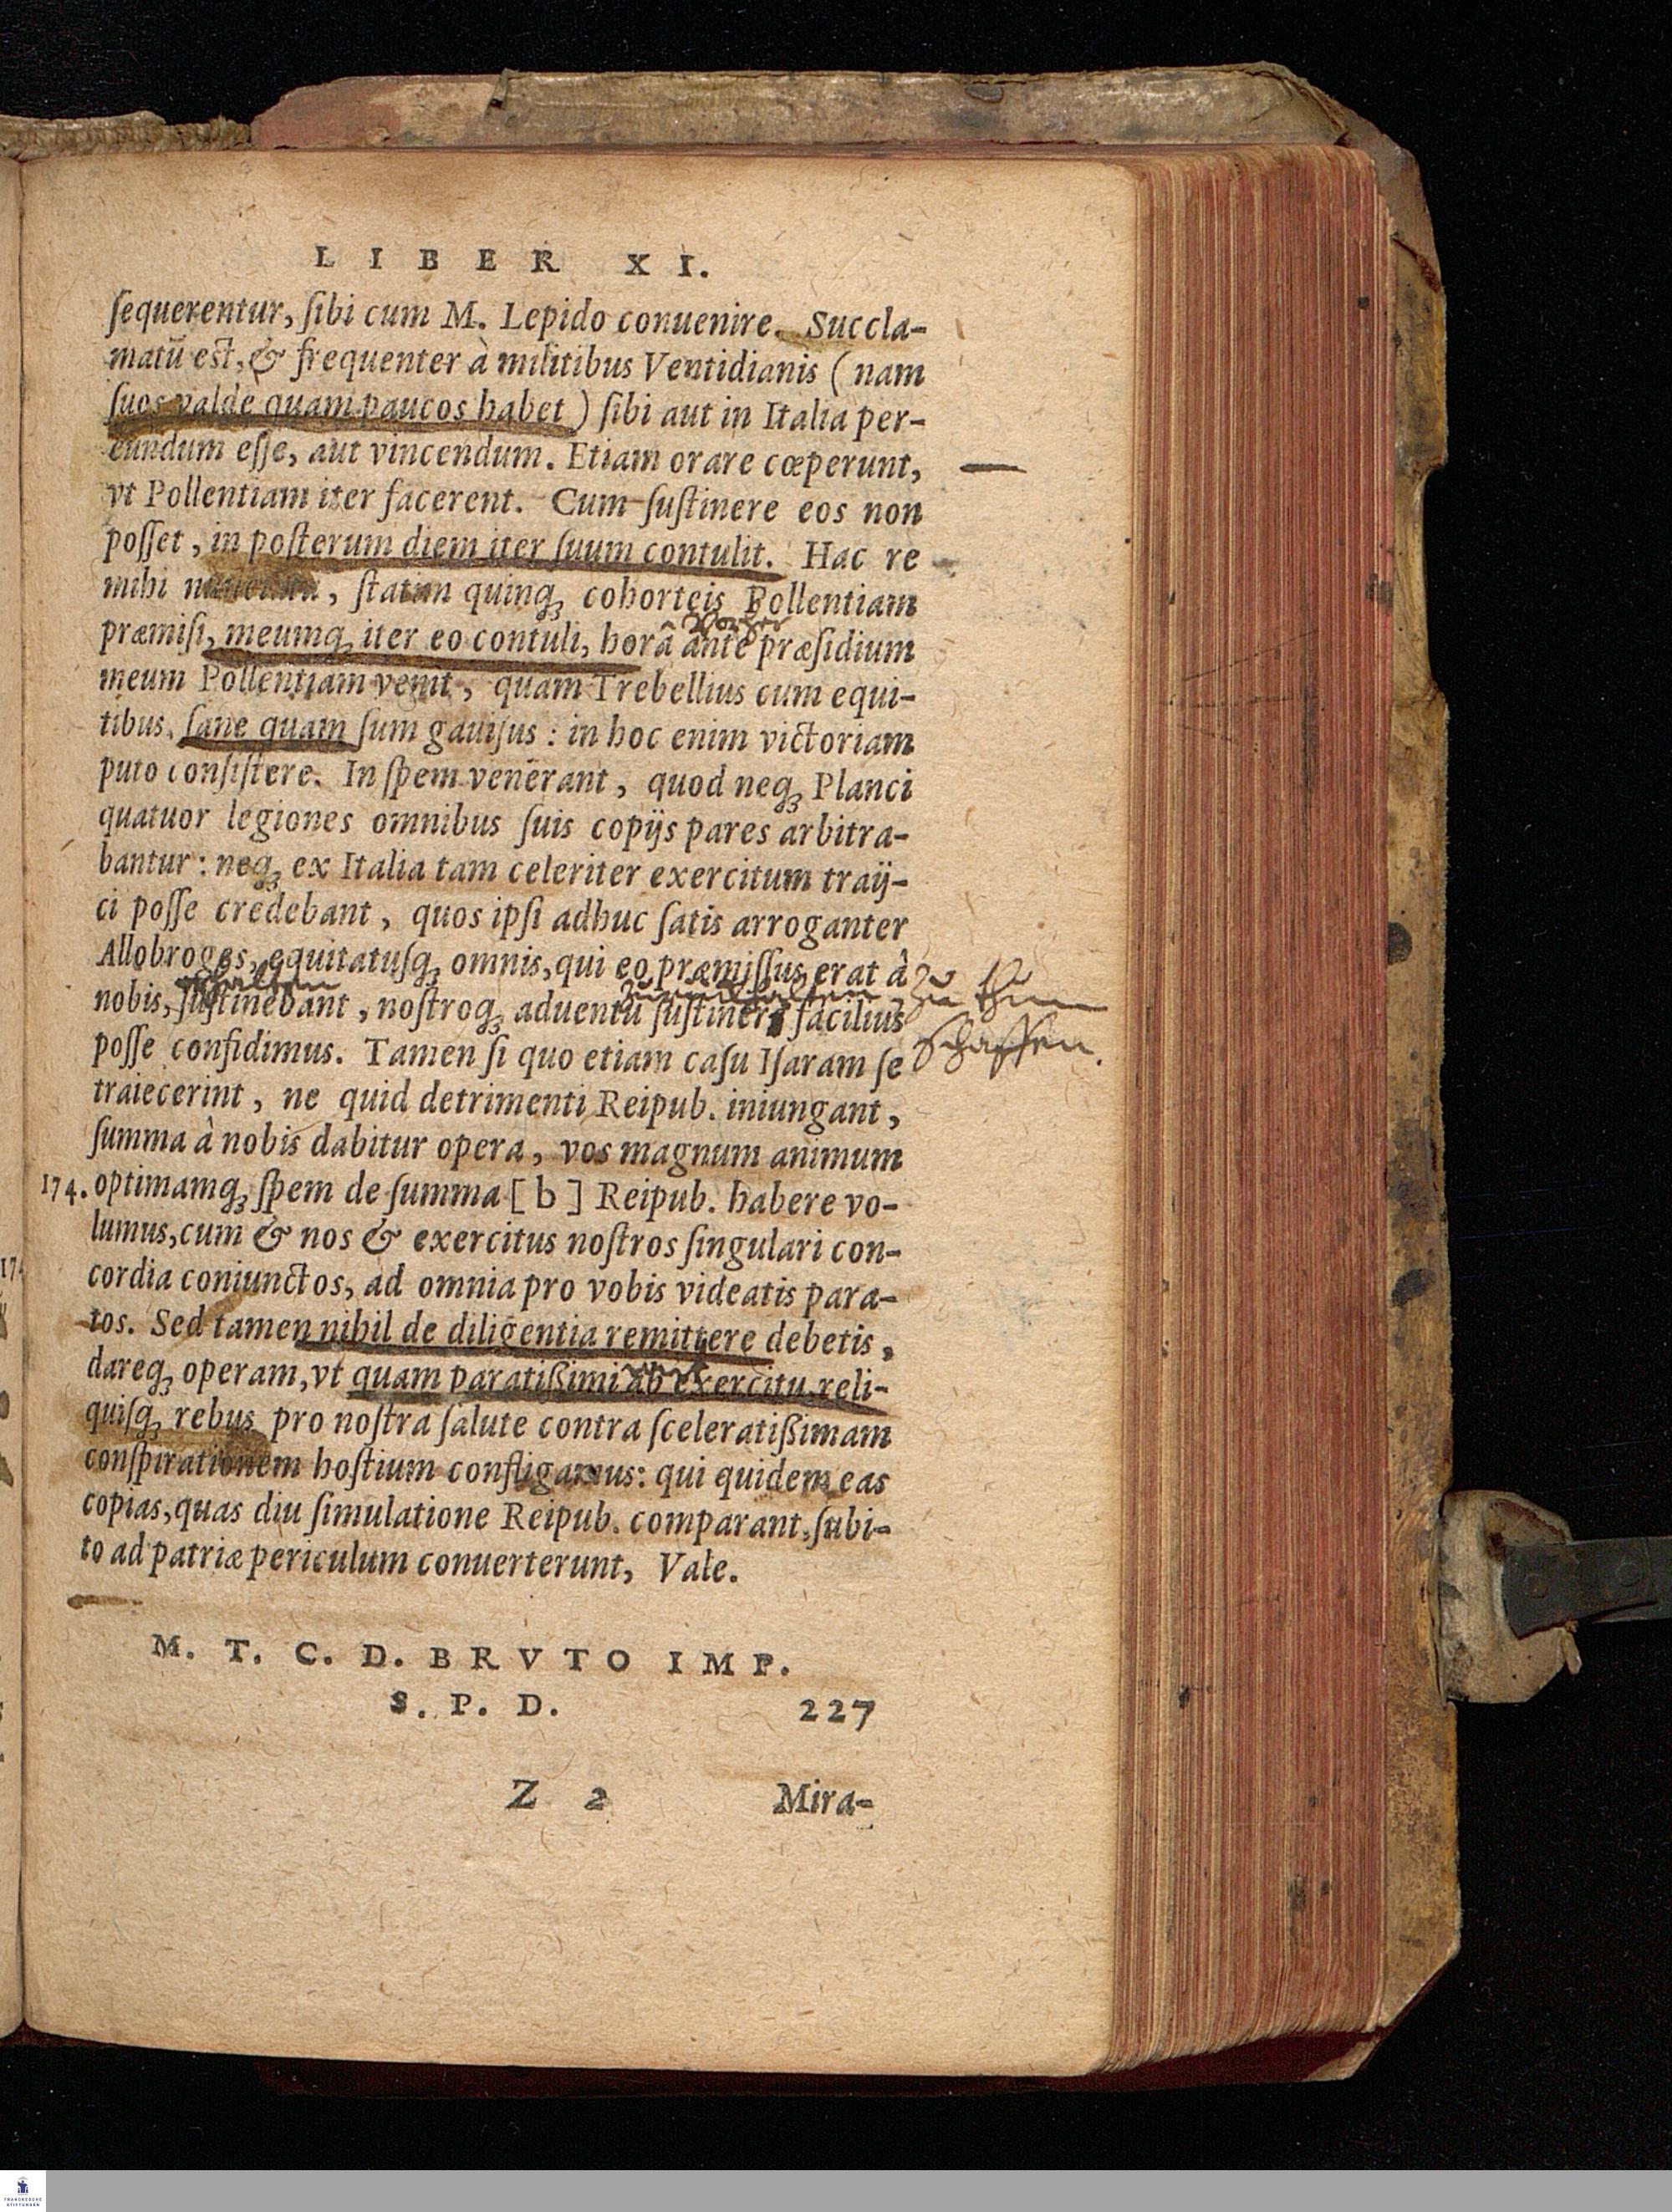 LIBER XI.
ſequerentur, ſibi cum M. Lepido conuenire. Succla-
matū est, & frequenter à militibus Ventidianis (nam
ſuos valde quam paucos habet) ſibi aut in Italia per-
eundum eſſe, aut vincendum. Etiam orare cœperunt,
vt Pollentiam iter facerent. Cum ſuſtinere eos non
poſſet, in poſterum diem iter ſuum contulit. Hac re
mihi, ſtatim quinq; cohorteis Pollentiam
vorher
præmiſi, meumq; iter eo contuli, horâ ante præſidium
meum Pollentiam venit, quam Trebellius cum equi-
tibus, ſane quam ſum gauiſus: in hoc enim victoriam
puto conſiſtere. In ſpem venerant, quod neq; Planci
quatuor legiones omnibus ſuis copijs pares arbitra-
bantur: neq; ex Italia tam celeriter exercitum traij-
ci poſſe credebant, quos ipſi adhuc ſatis arroganter
Allobroges, equitatuſq; omnis, qui eo præmiſſus erat à
nobis, ſuſtinebant, noſtroq; aduentu ſuſtineri facilius
zu thun
ſchaffen.
poſſe confidimus. Tamen ſi quo etiam caſu Iſaram ſe
traiecerint, ne quid detrimenti Reipub. iniungant,
ſumma à nobis dabitur opera, vos magnum animum
174. optimamq; ſpem de ſumma [b] Reipub. habere vo-
lumus, cum & nos & exercitus noſtros ſingulari con-
cordia coniunctos, ad omnia pro vobis videatis para-
tos. Sed tamen nihil de diligentia remittere debetis,
dareq; operam, vt quam paratißimi ab exercitu reli-
quiſq; rebus pro noſtra ſalute contra ſceleratißimam
conſpirationem hoſtium confligamus: qui quidem eas
copias, quas diu ſimulatione Reipub. comparant, ſubi-
to ad patriæ periculum conuerterunt, Vale.
M. T. C. D. BRVTO IMP.
S. P. D. 227
Z 2 Mira-
FRANCKESCHE
STIFTUNGEN